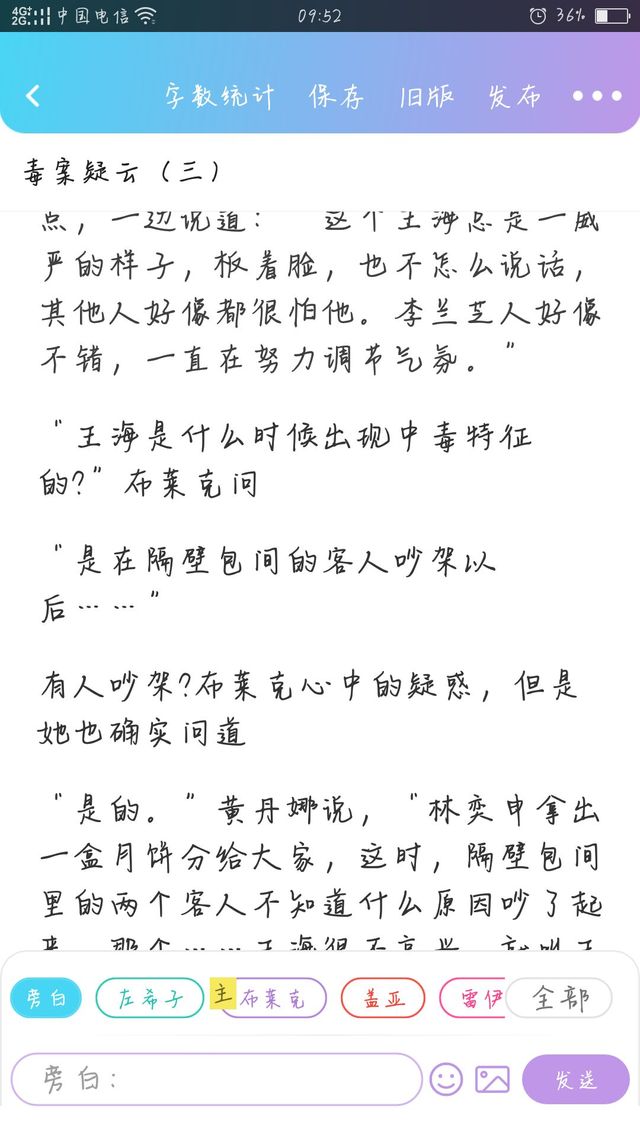 4G+
2G
中国电信
09:52
36%
字数统计 保存 旧版 发布
毒案疑云（三）
点，一边说道：“这个王海总是一威
严的样子，板着脸，也不怎么说话，
其他人好像都很怕他。李兰芝人好像
不错，一直在努力调节气氛。”
“王海是什么时候出现中毒特征
的?”布莱克问
“是在隔壁包间的客人吵架以
后……”
有人吵架?布莱克心中的疑惑，但是
她也确实问道
“是的。”黄丹娜说，“林奕申拿出
一盒月饼分给大家，这时，隔壁包间
里的两个客人不知道什么原因吵了起
来，那个……王海很不高兴，就叫王
旁白 左希子 主 布莱克 盖亚 雷伊 全部
旁白：
发送